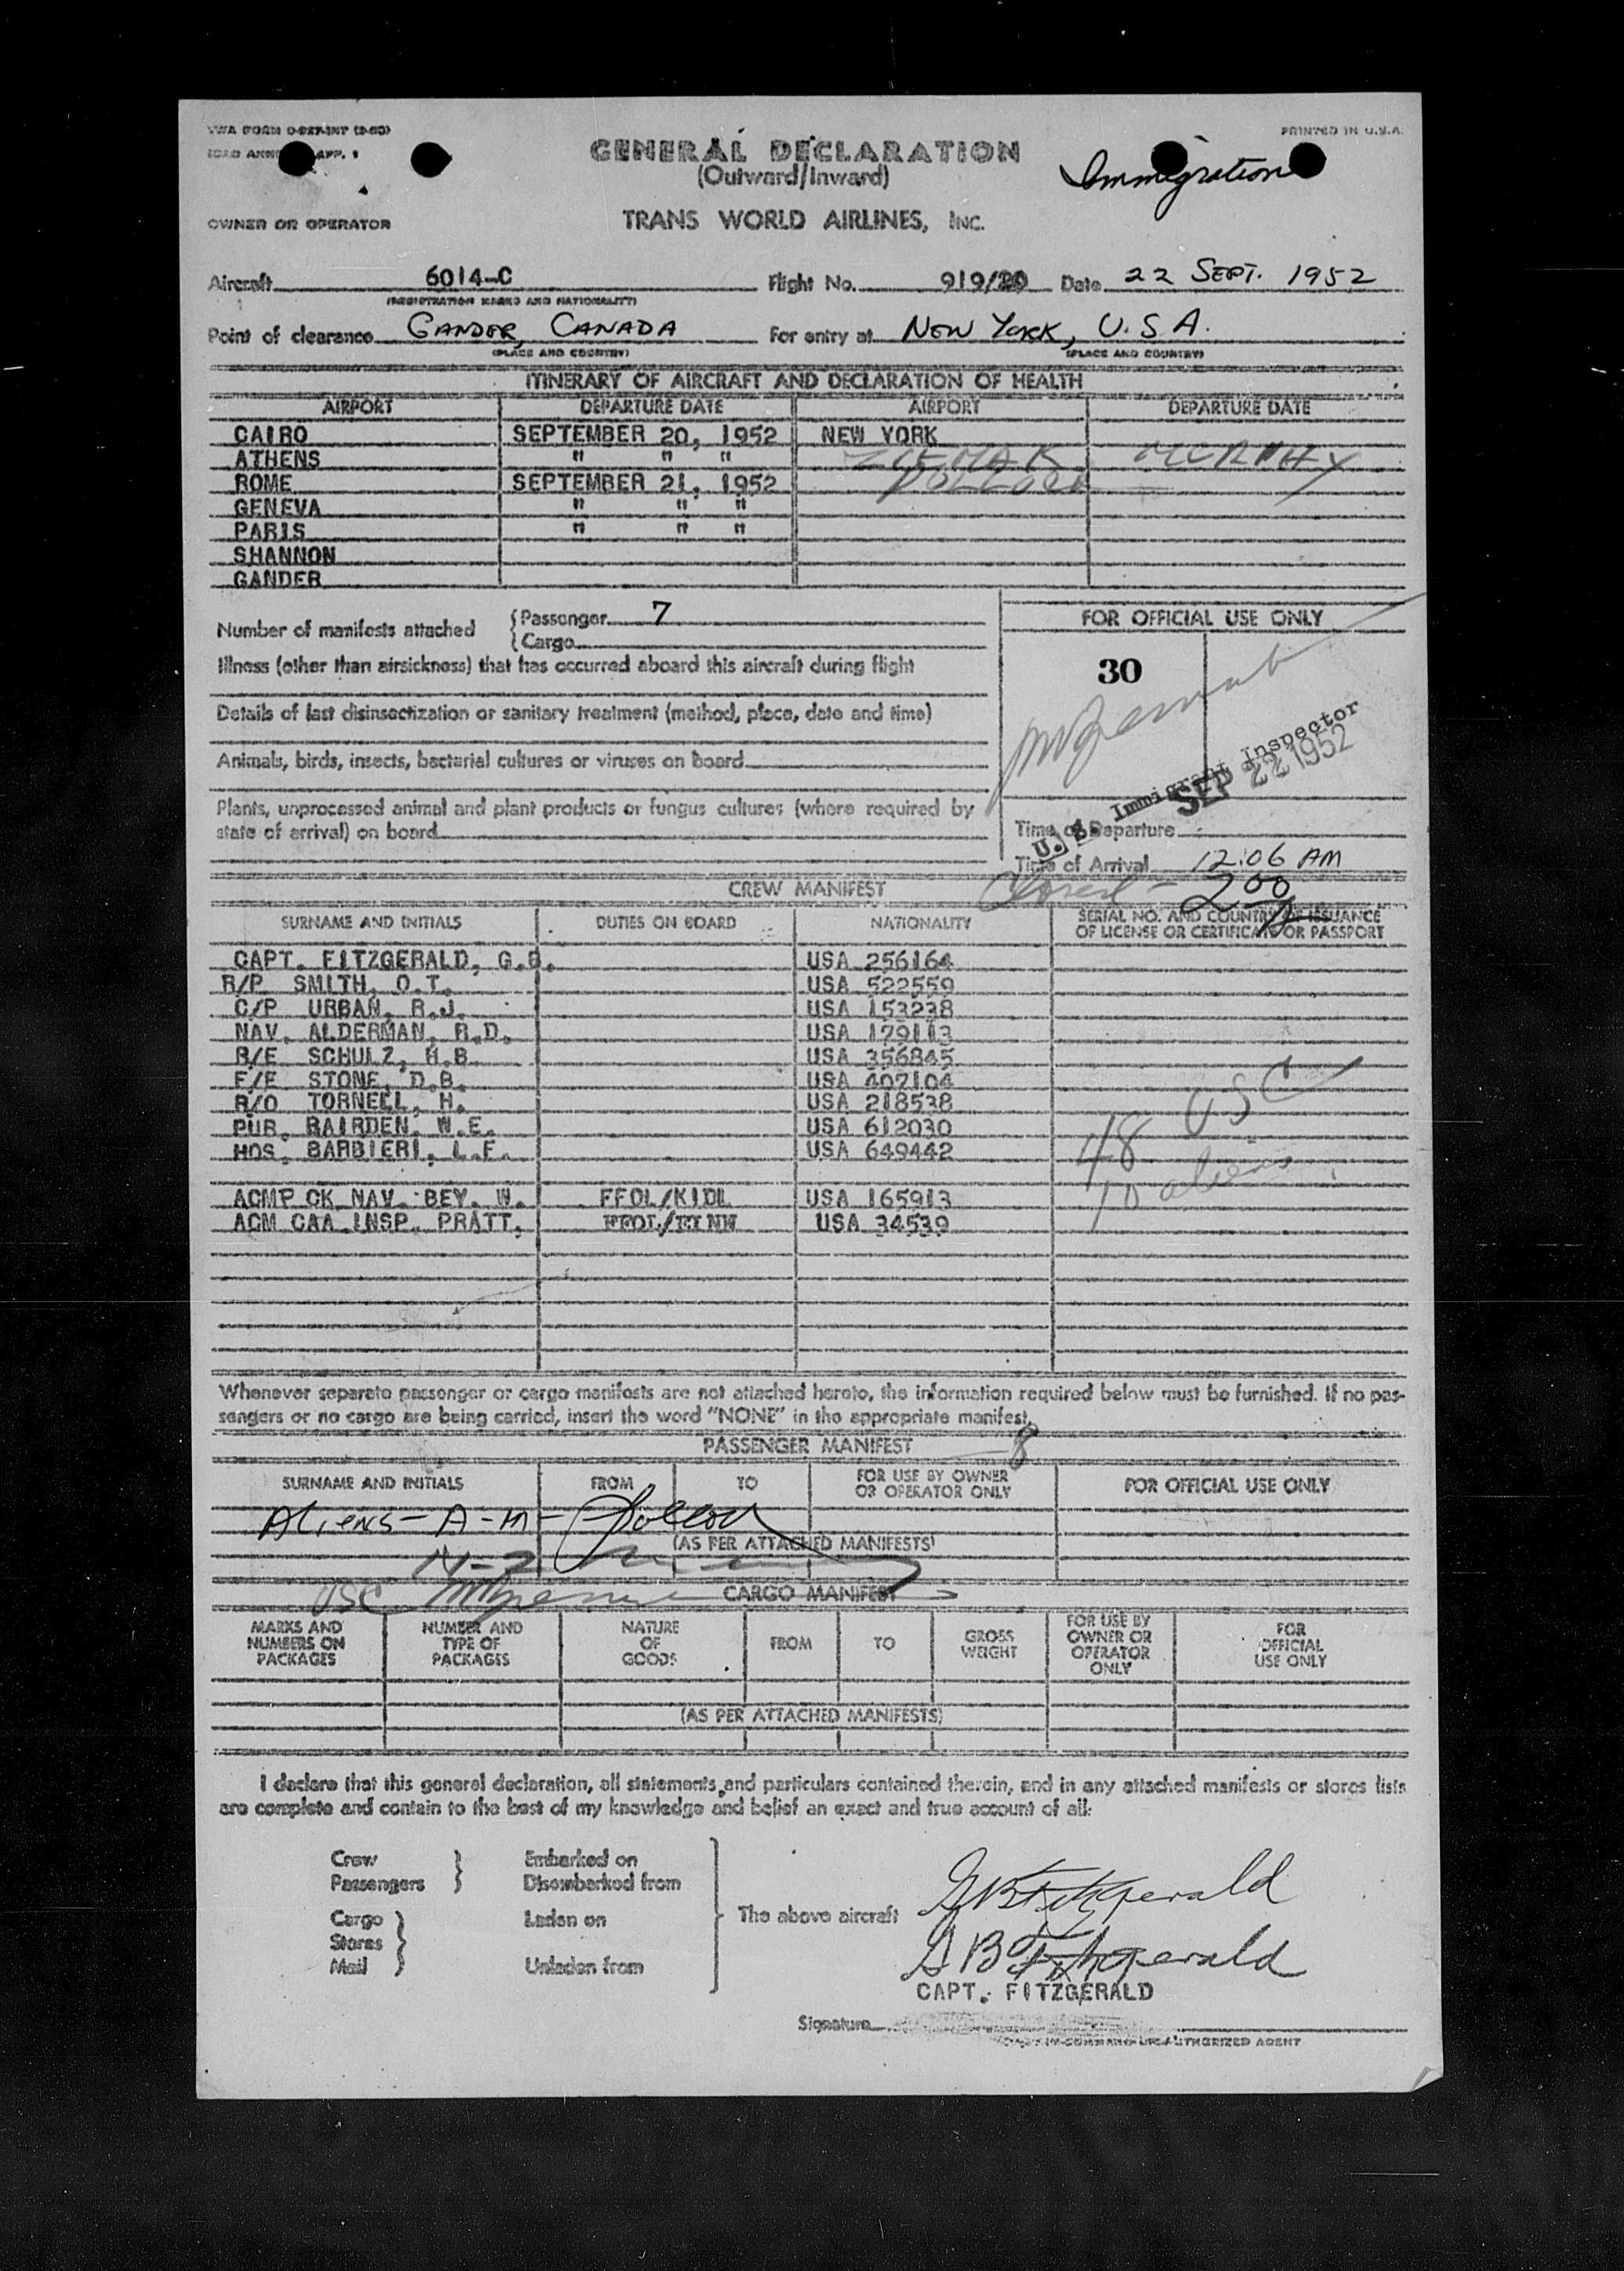 TWA FORM
PRINTED IN U.S.A.
GENERAL DECLARATION
(Outward/Inward)
Immigration
OWNER OR OPERATOR
TRANS WORLD AIRLINES, INC.
Aircraft 6014-C Flight No. 919/ Date 22 SEPT. 1952
(REGISTRATION MARKS AND NATIONALITY)
Point of clearance GANDER, CANADA For entry at NEW YORK, U.S.A.
(PLACE AND COUNTRY) (PLACE AND COUNTRY)
ITINERARY OF AIRCRAFT AND DECLARATION OF HEALTH
AIRPORT DEPARTURE DATE AIRPORT DEPARTURE DATE
CAIRO SEPTEMBER 20, 1952 NEW YORK
ATHENS " " " MURPHY
ROME SEPTEMBER 21, 1952
GENEVA " " "
PARIS " " "
SHANNON
GANDER
Number of manifests attached { Passenger 7
{ Cargo
FOR OFFICIAL USE ONLY
Illness (other than airsickness) that has occurred aboard this aircraft during flight
30
Details of last disinsectization or sanitary treatment (method, place, date and time)
Animals, birds, insects, bacterial cultures or viruses on board
U. S. Immigrant Inspector
SEP 22 1952
Plants, unprocessed animal and plant products or fungus cultures (where required by
state of arrival) on board
Time of Departure
Time of Arrival 12:06 AM
200
CREW MANIFEST
SURNAME AND INITIALS DUTIES ON BOARD NATIONALITY SERIAL NO. AND COUNTRY OF ISSUANCE
OF LICENSE OR CERTIFICATE OR PASSPORT
CAPT. FITZGERALD, G.B. USA 256164
R/P SMITH, O.T. USA 522559
C/P URBAN, R.J. USA 153238
NAV. ALDERMAN, R.D. USA 179113
R/E SCHULZ, H.B. USA 356845
F/E STONE, D.B. USA 407104
R/O TORNELL, H. USA 218538
PUR. BAIRDEN, W.E. USA 612030
HOS. BARBIERI, L.F. USA 649442
48 USC
10 aliens
ACMP CK NAV. BEY. W. FFOL/KIDL USA 165913
ACM CAA INSP. PRATT. USA 34539
Whenever separate passenger or cargo manifests are not attached hereto, the information required below must be furnished. If no pas-
sengers or no cargo are being carried, insert the word "NONE" in the appropriate manifest.
PASSENGER MANIFEST 8
SURNAME AND INITIALS FROM TO FOR USE BY OWNER
OR OPERATOR ONLY FOR OFFICIAL USE ONLY
ALIENS - A-M -
(AS PER ATTACHED MANIFESTS)
N-Z
USC
CARGO MANIFEST
MARKS AND
NUMBERS ON
PACKAGES
NUMBER AND
TYPE OF
PACKAGES
NATURE
OF
GOODS
FROM
TO
GROSS
WEIGHT
FOR USE BY
OWNER OR
OPERATOR
ONLY
FOR
OFFICIAL
USE ONLY
(AS PER ATTACHED MANIFESTS)
I declare that this general declaration, all statements and particulars contained therein, and in any attached manifests or stores lists
are complete and contain to the best of my knowledge and belief an exact and true account of all:
Crew } Embarked on
Passengers } Disembarked from
Cargo } Laden on
Stores }
Mail } Unladen from
The above aircraft
G B Fitzgerald
G B Fitzgerald
CAPT. FITZGERALD
Signature
AUTHORIZED AGENT